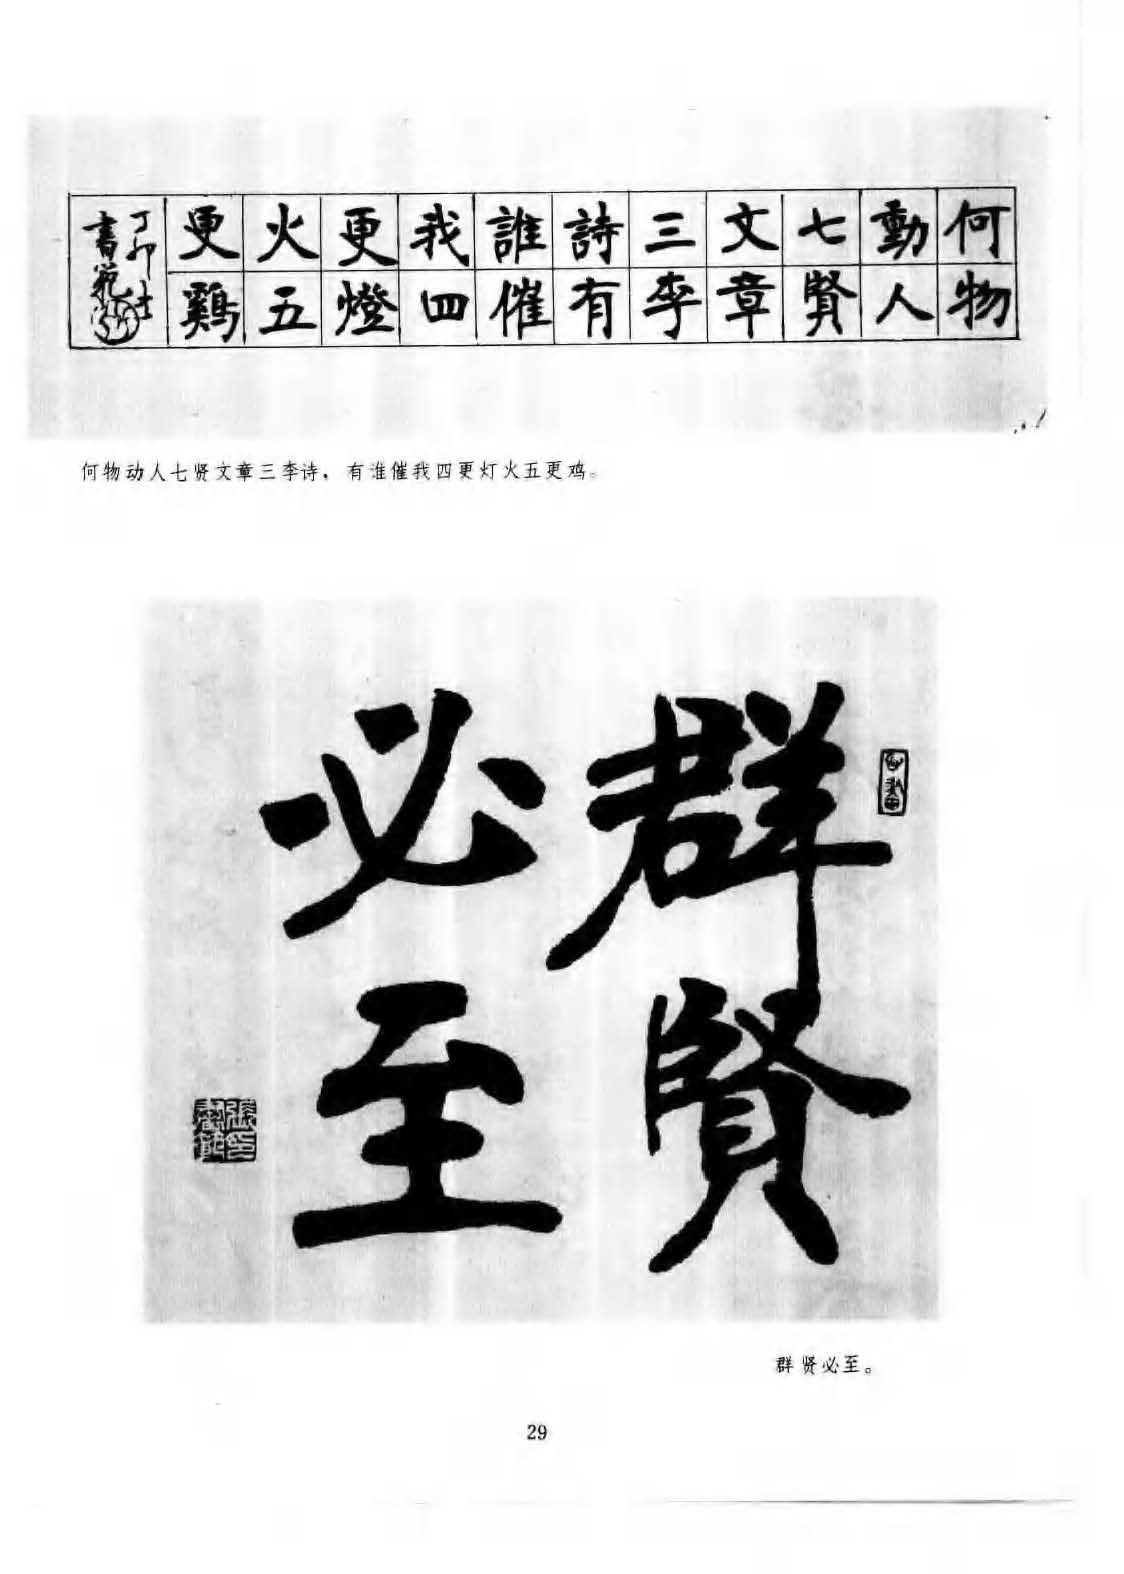 何物動人七賢文章三李詩有誰催我四更燈火五更鷄
丁卯
書範
何物动人七贤文章三李诗，有谁催我四更灯火五更鸡。
群賢必至
群贤必至。
29